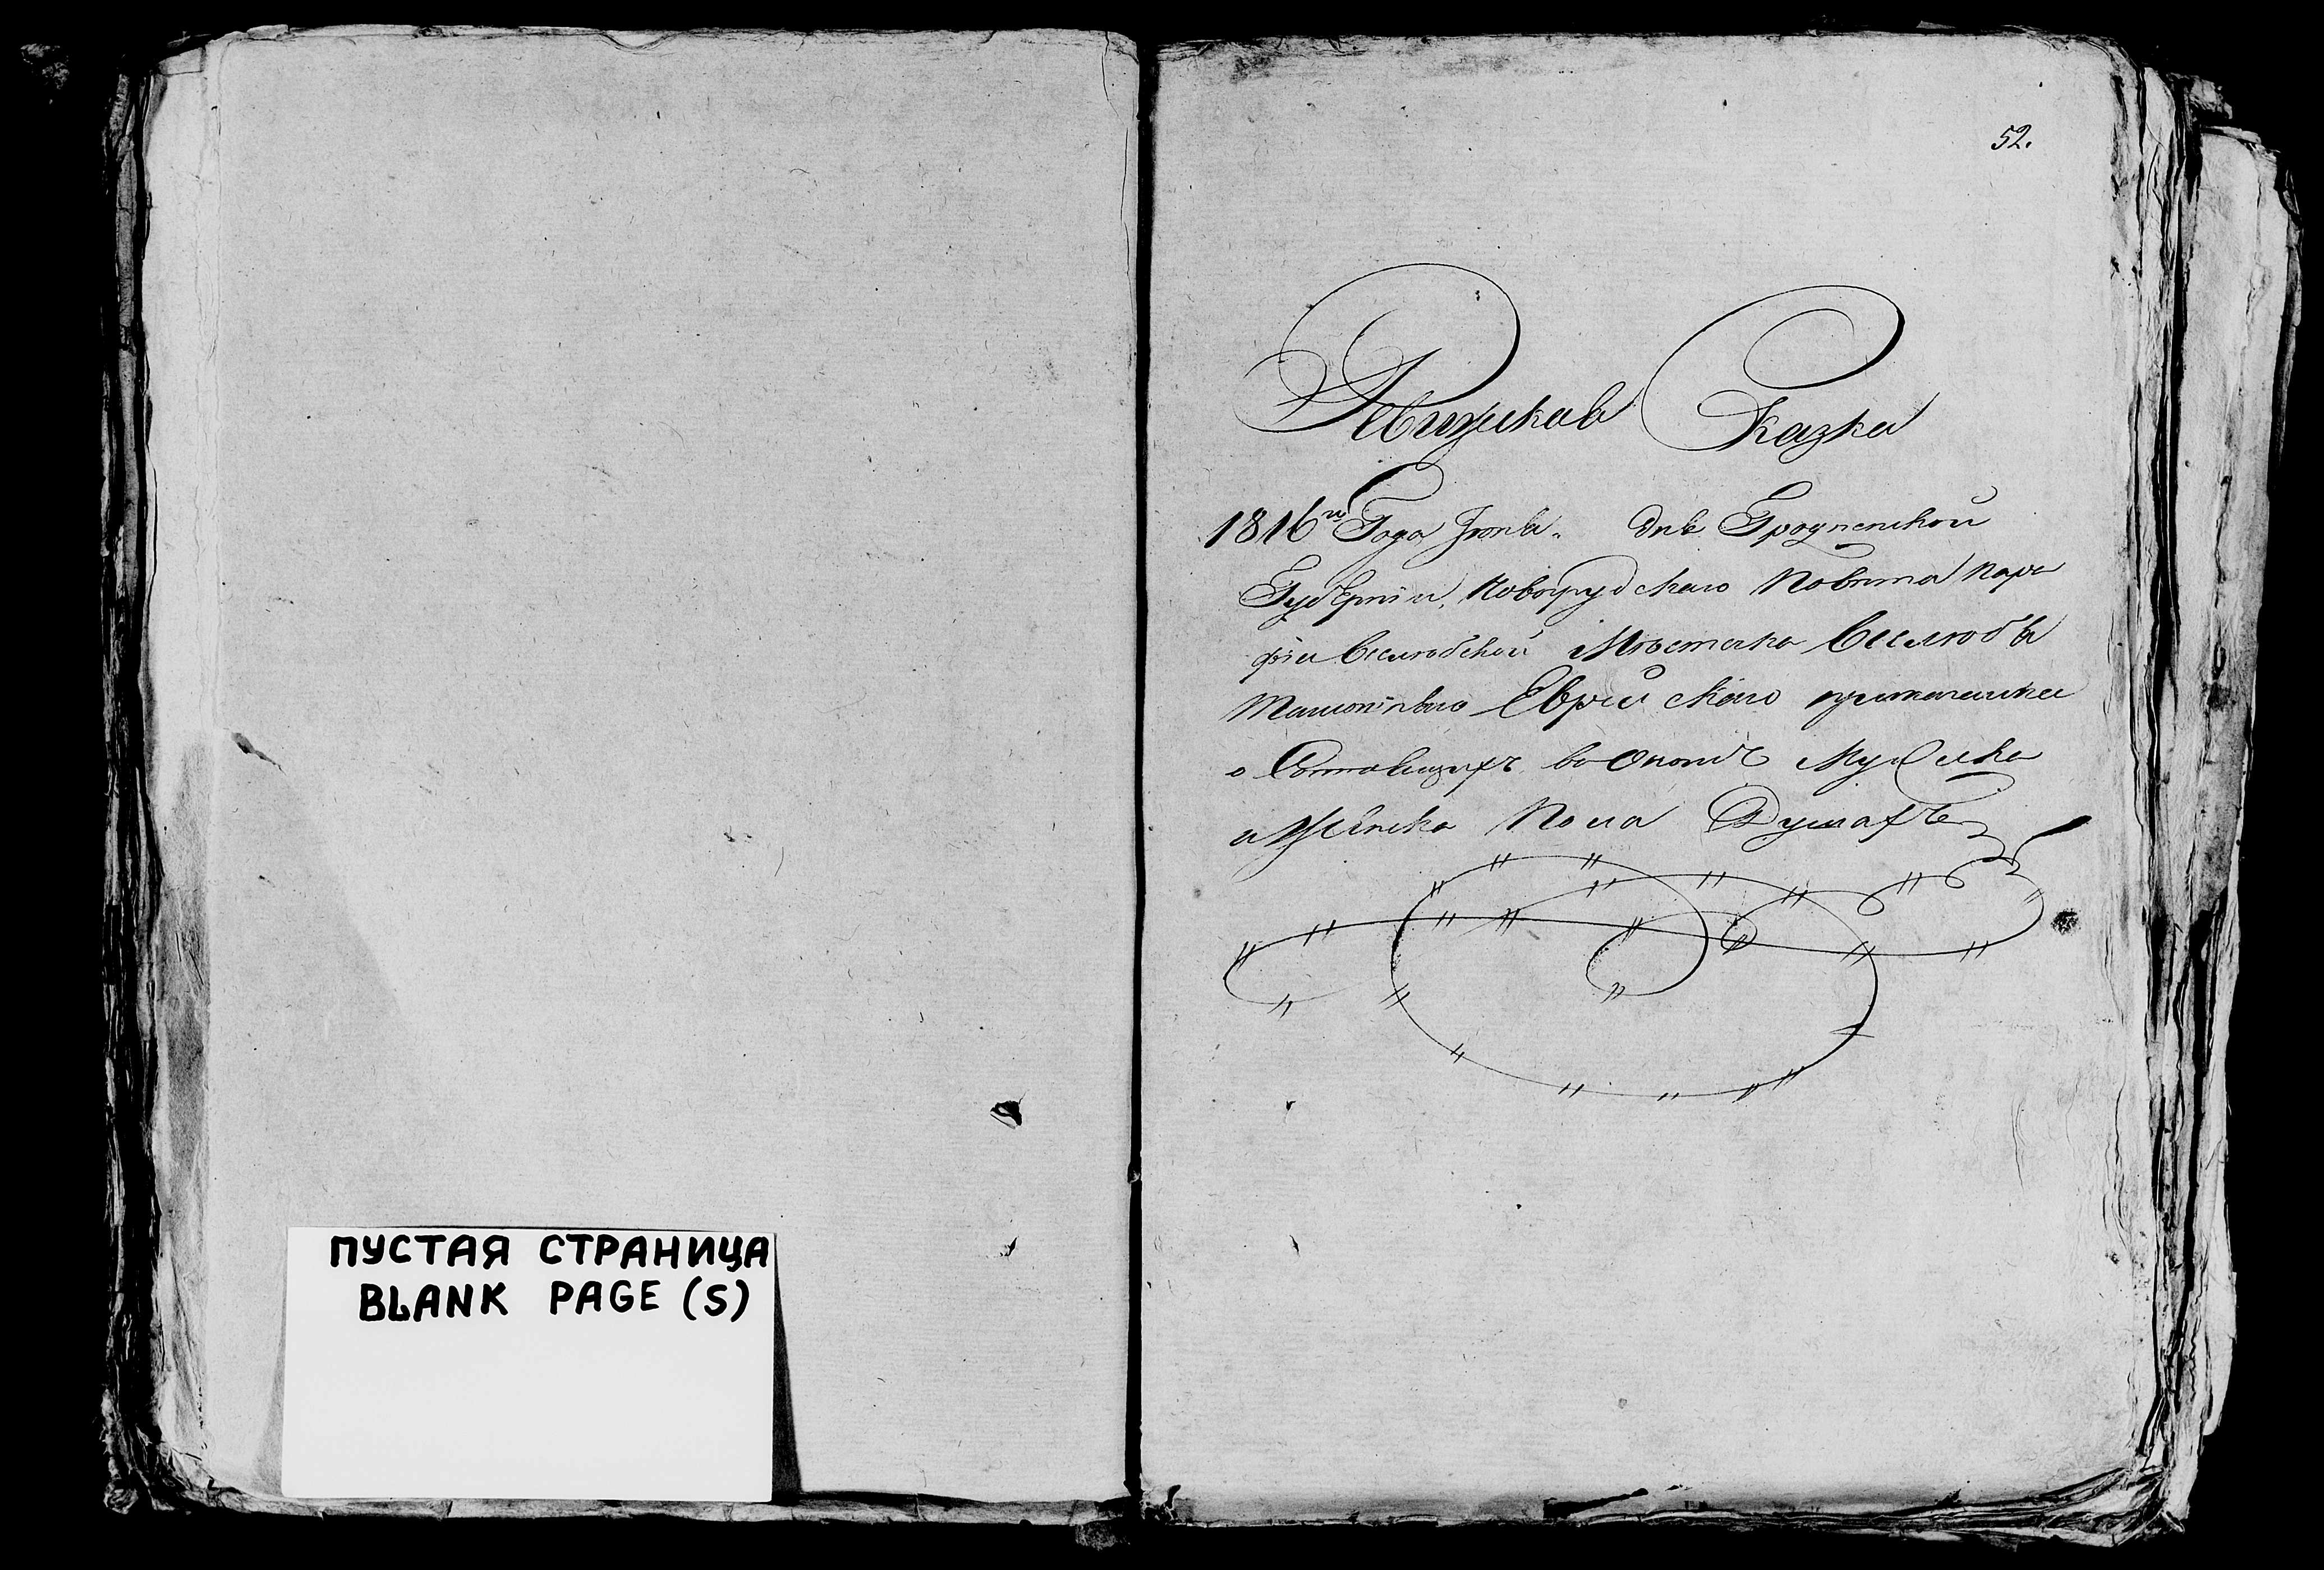 ПУСТАЯ СТРАНИЦА
BLANK PAGE (S)
52.
Ревижская Сказка
1816го Года Июня „ дня Гродненской
Губерніи, Новогрудскаго Повѣта пара
фіи Вселюбской Мѣстечка Вселюбя
Еврейскаго
о состоящихъ во ономъ Мужска
и Женска Пола Душахъ